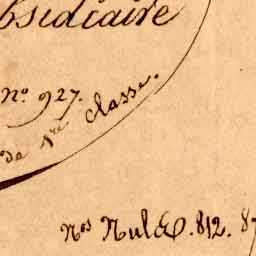 bsidiaire
Nº 927.
de 1re classe.
Nos Nul &. 812. 87